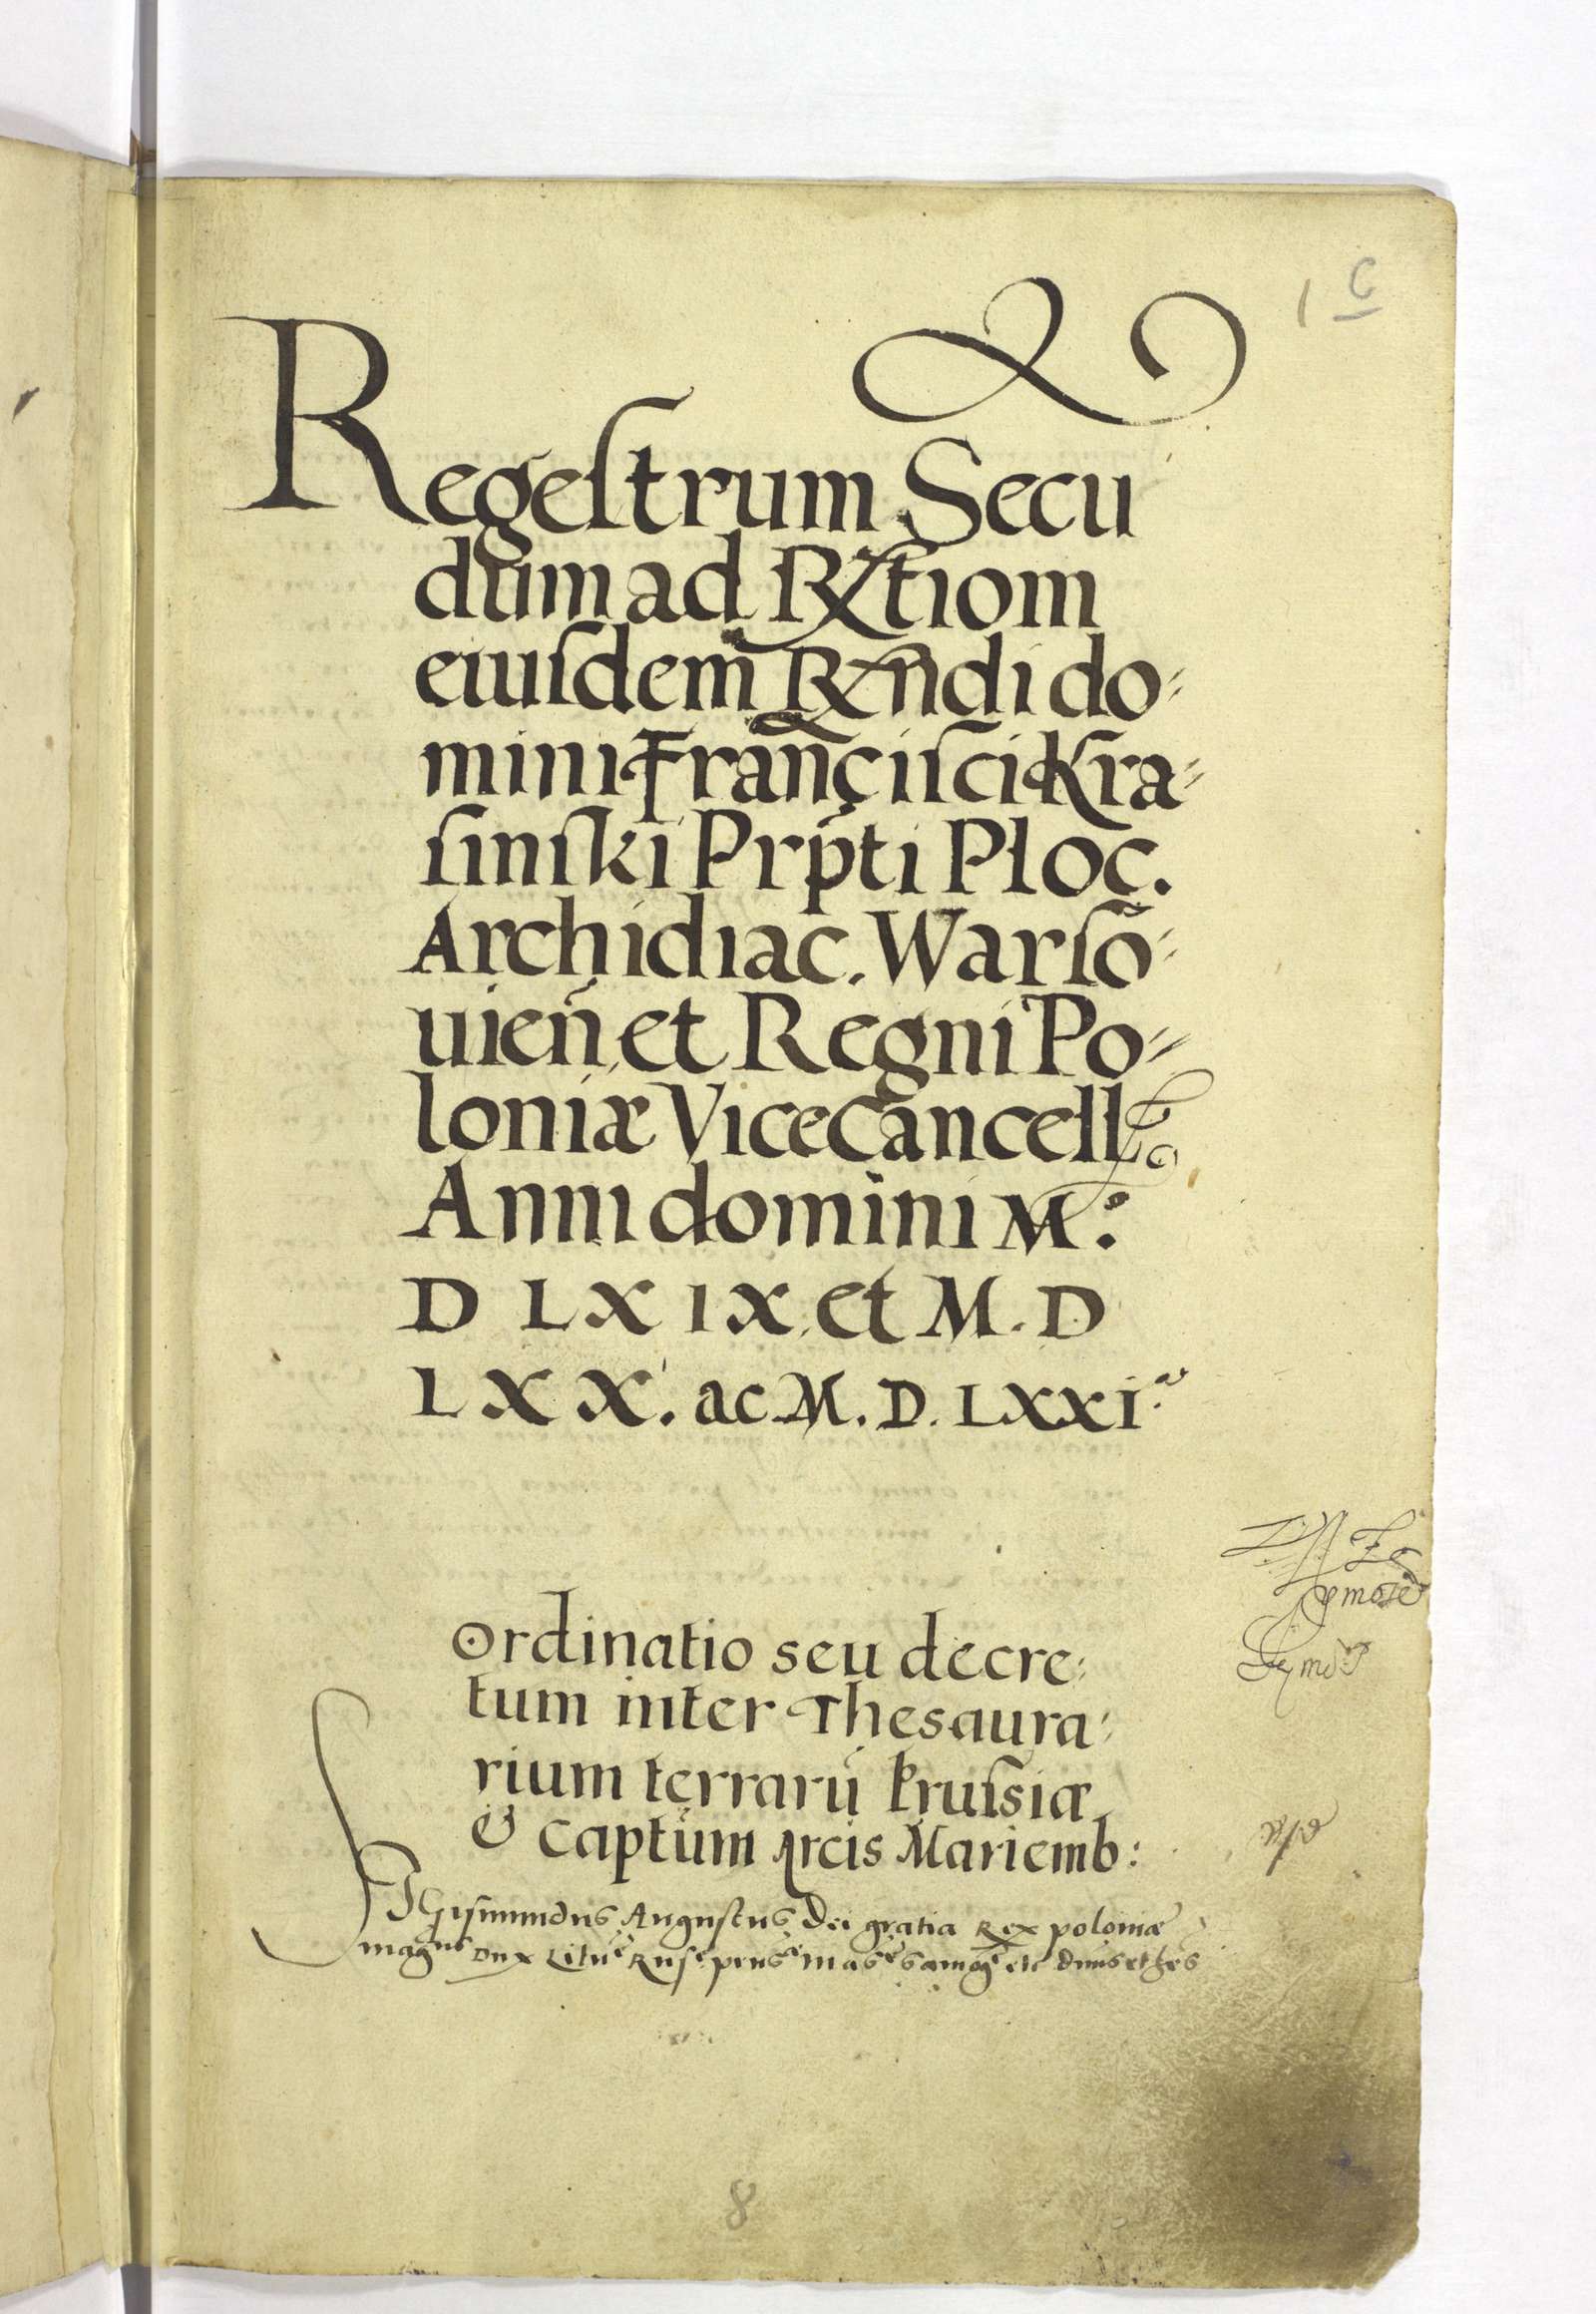 1 c
Regeſtrum Secu
dum ad Rẋtiom
eiuſdem Rx̃ndi do⸗
mini Franciſci Kra⸗
ſinſki Prṕti Ploc.
Archidiac. Warſo⸗
uień et Regni Po⸗
loniæ ViceCancell
Anni domini M:
D LX IX et M. D
LXX. ac M. D. LXXI
Ordinatio seu decre:
tum inter Thesaura:
rium terrarū Pruſsiæ
& Captum Arcis Mariemb:
SIgiſmundus Auguſtus Dei gratia Rex poloniæ
magnus Dux Litu Ruſ prus mas samog etc dnus et heͬs
8